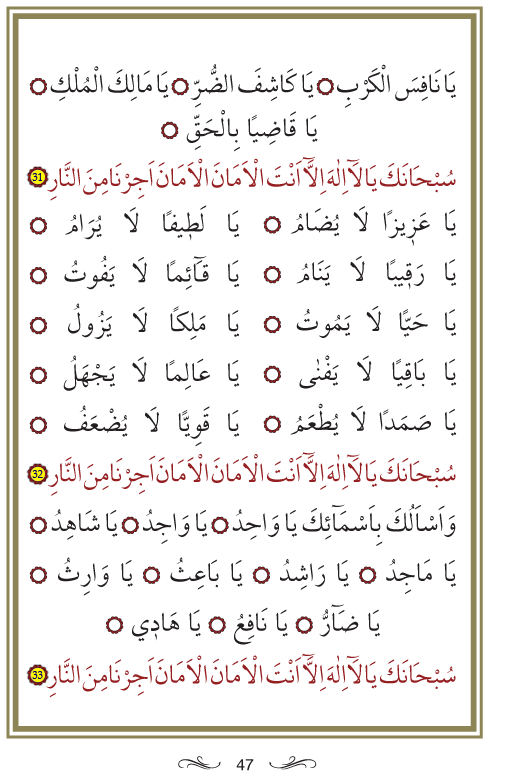 يَا نَافِسَ الْكَرْبِ ۞ يَا كَاشِفَ الضُّرِّ ۞ يَا مَالِكَ الْمُلْكِ ۞
يَا قَاضِيًا بِالْحَقِّ ۞
سُبْحَانَكَ يَا لَآ اِلٰهَ اِلَّآ اَنْتَ الْاَمَانَ الْاَمَانَ اَجِرْنَا مِنَ النَّارِ 31
يَا عَزِيزًا لَا يُضَامُ ۞ يَا لَطِيفًا لَا يُرَامُ ۞
يَا رَقِيبًا لَا يَنَامُ ۞ يَا قَآئِمًا لَا يَفُوتُ ۞
يَا حَيًّا لَا يَمُوتُ ۞ يَا مَلِكًا لَا يَزُولُ ۞
يَا بَاقِيًا لَا يَفْنٰى ۞ يَا عَالِمًا لَا يَجْهَلُ ۞
يَا صَمَدًا لَا يُطْعَمُ ۞ يَا قَوِيًّا لَا يُضْعَفُ ۞
سُبْحَانَكَ يَا لَآ اِلٰهَ اِلَّآ اَنْتَ الْاَمَانَ الْاَمَانَ اَجِرْنَا مِنَ النَّارِ 32
وَ اَسْاَلُكَ بِاَسْمَآئِكَ يَا وَاحِدُ ۞ يَا وَاجِدُ ۞ يَا شَاهِدُ ۞
يَا مَاجِدُ ۞ يَا رَاشِدُ ۞ يَا بَاعِثُ ۞ يَا وَارِثُ ۞
يَا ضَآرُّ ۞ يَا نَافِعُ ۞ يَا هَادِي ۞
سُبْحَانَكَ يَا لَآ اِلٰهَ اِلَّآ اَنْتَ الْاَمَانَ الْاَمَانَ اَجِرْنَا مِنَ النَّارِ 33
47